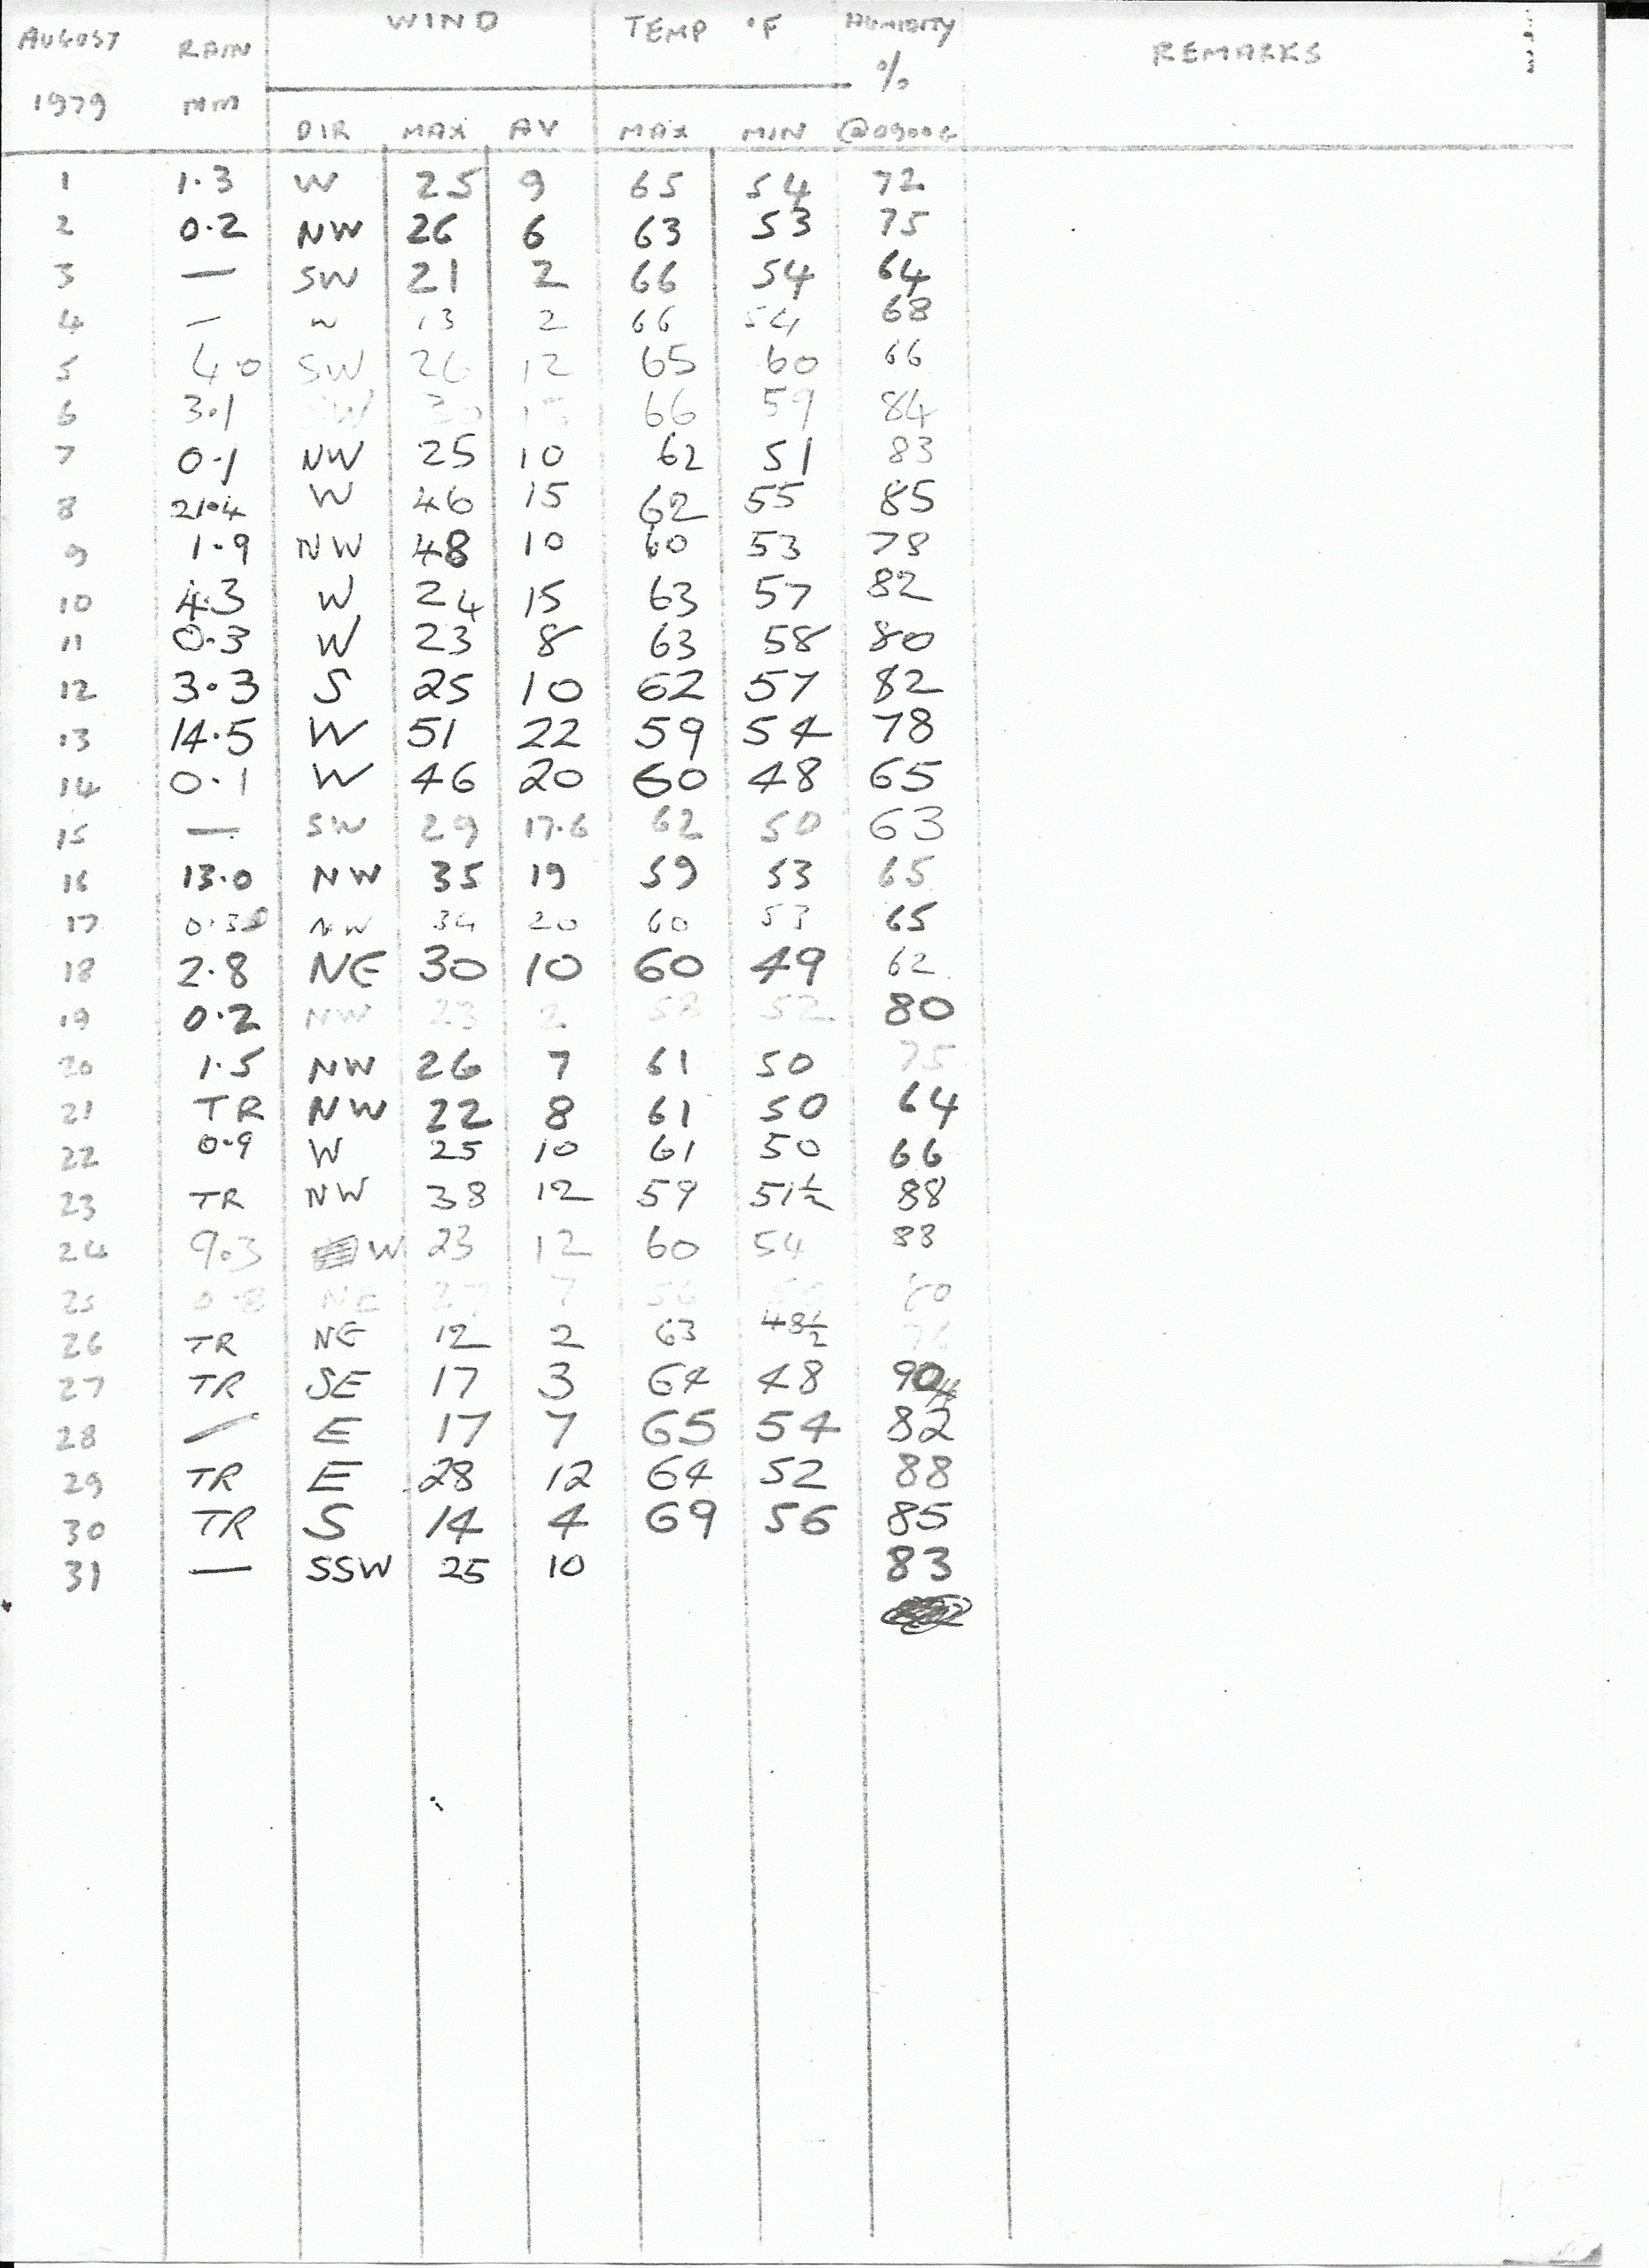 AUGUST RAIN WIND TEMP °F HUMIDITY REMARKS
1979 MM %
DIR MAX AV MAX MIN @0900G
1 1.3 W 25 9 65 54 72
2 0.2 NW 26 6 63 53 75
3 — SW 21 2 66 54 64
4 — W 13 2 66 54 68
5 4.0 SW 26 12 65 60 66
6 3.1 SW 30 15 66 59 84
7 0.1 NW 25 10 62 51 83
8 21.4 W 46 15 62 55 85
9 1.9 NW 48 10 60 53 78
10 4.3 W 24 15 63 57 82
11 0.3 W 23 8 63 58 80
12 3.3 S 25 10 62 57 82
13 14.5 W 51 22 59 54 78
14 0.1 W 46 20 60 48 65
15 — SW 29 17.6 62 50 63
16 13.0 NW 35 19 59 53 65
17 0.3 NW 34 20 60 53 65
18 2.8 NE 30 10 60 49 62
19 0.2 NW 23 2 58 52 80
20 1.5 NW 26 7 61 50 75
21 TR NW 22 8 61 50 64
22 0.9 W 25 10 61 50 66
23 TR NW 38 12 59 51½ 88
24 9.3 W 23 12 60 54 83
25 0.8 NE 27 7 56 80
26 TR NE 12 2 63 48½
27 TR SE 17 3 64 48 90
28 — E 17 7 65 54 82
29 TR E 28 12 64 52 88
30 TR S 14 4 69 56 85
31 — SSW 25 10 83